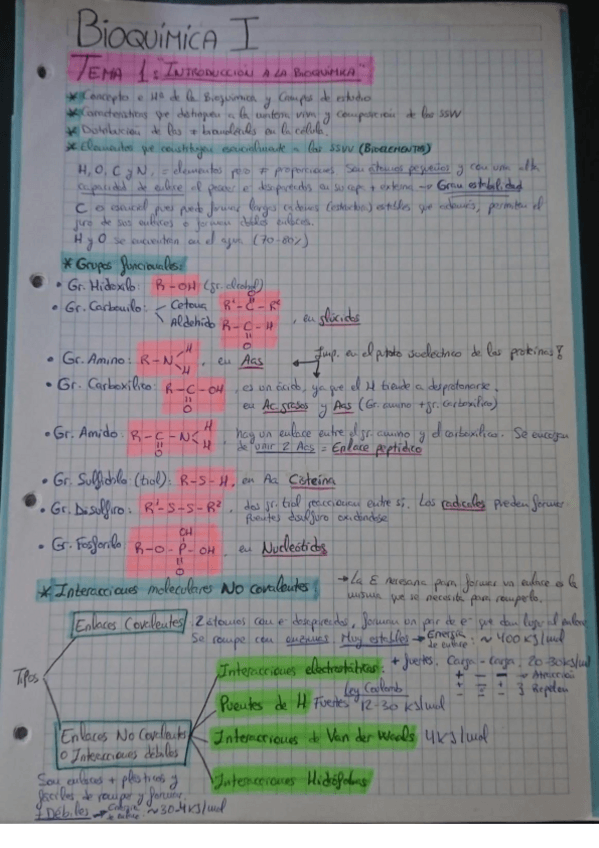 BIOQUÍMICA I
TEMA 1: "INTRODUCCIÓN A LA BIOQUÍMICA"
* Concepto e Hª de la Bioquímica y Campos de estudio
* Características que distinguen a la materia viva y composición de los SSVV
* Distribución de las ≠ biomoléculas en la célula.
* Elementos que constituyen esencialmente a los SSVV (BIOELEMENTOS)
H, O, C y N, = elementos pero ≠ proporciones. Son átomos pequeños y con una alta
capacidad de enlace al poseer e⁻ desapareados en su capa + externa → Gran estabilidad
C es esencial pues puede formar largas cadenas (estables) que además, permiten el
giro de sus enlaces o forman dobles enlaces.
H y O se encuentran en el agua (70-80%)
* Grupos funcionales:
• Gr. Hidroxilo: R-OH (gr. alcohol)
• Gr. Carbonilo: Cetona R¹-C-R² O
Aldehído R-C-H O , en glúcidos
• Gr. Amino: R-N H H , en Aas Imp. en el punto isoeléctrico de las proteínas!
• Gr. Carboxílico: R-C-OH O , es un ácido, ya que el H tiende a desprotonarse.
en Ac. grasos y Aas (Gr. amino + gr. carboxílico)
• Gr. Amido: R-C-N H H O , hay un enlace entre el gr. amino y el carboxílico. Se encargan
de unir 2 Aas = Enlace peptídico
• Gr. Sulfidrilo (tiol): R-S-H, en Aa Cisteína
• Gr. Disulfuro: R¹-S-S-R², dos gr. tiol reaccionan entre sí. Los radicales pueden formar
puentes disulfuro oxidándose
• Gr. Fosforilo: R-O-P-OH OH O , en Nucleótidos
* Interacciones moleculares NO covalentes: → La E necesaria para formar un enlace es la
misma que se necesita para romperlo.
Tipos
Enlaces Covalentes: 2 átomos con e⁻ desapareados, forman un par de e⁻ que dan lugar al enlace
Se rompe con enzimas. Muy estables → Energía de enlace: ~400 KJ/mol
Enlaces No Covalentes
o Interacciones débiles
Interacciones electrostáticas: + fuertes. Carga-Carga: 20-30 KJ/mol
Ley Coulomb
+ - → Atracción
Repelen
Puentes de H Fuertes 12-30 KJ/mol
Interacciones de Van der Waals 4 KJ/mol
Interacciones Hidrófobas
Son enlaces + plásticos y
fáciles de romper y formar.
+ Débiles → Energía de enlace ~30-4 KJ/mol